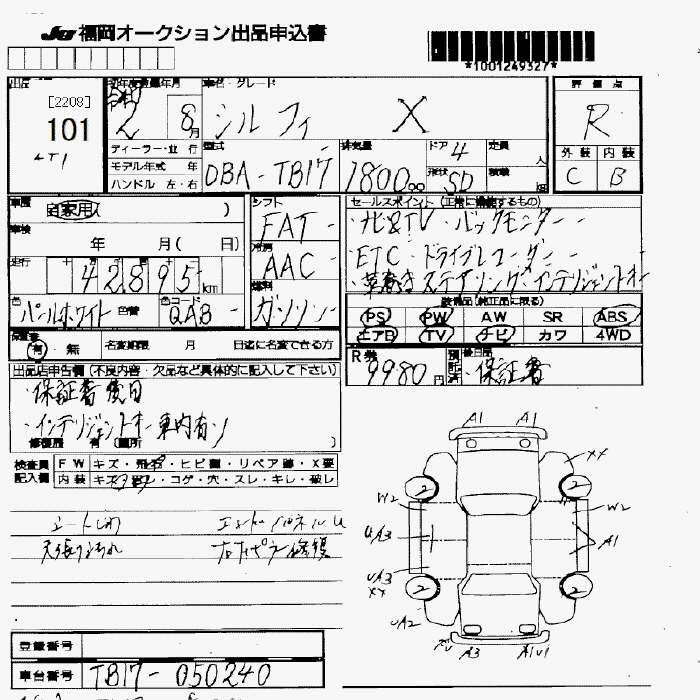 JU 福岡オークション出品申込書
*1001249327*
[2208]
101
4T1
初年度登録年月
令和 2 8月
車名・グレード
シルフィ X
評価点
R
外装 内装
C B
ディーラー・並行
モデル年式 年
ハンドル 左・右
型式
DBA-TB17
排気量
1800cc
ドア 4
形状 SD
定員 人
積載 kg
車歴
自家用( )
車検
年 月( 日)
走行
42895 km
色
パールホワイト 色替
色コード
QAB-
シフト
FAT-
冷房
AAC-
燃料
ガソリン
セールスポイント(正常に機能するもの)
ナビ&TV・バックモニター
ETC・ドライブレコーダー
革巻きステアリング・インテリジェントキー
装備品(純正品に限る)
PS PW AW SR ABS
エアB TV ナビ カワ 4WD
保証書
有・無
名変期限 月 日迄に名変できる方
R券
9980円
預託済
後日品
・保証書
出品店申告欄(不良内容・欠品など具体的に記入して下さい)
・保証書後日
・インテリジェントキー車内有り
修復歴 有(箇所 )
検査員
記入欄
FW キズ・飛石・ヒビ割・リペア跡・X要
内装 キズ・汚レ・コゲ・穴・スレ・キレ・破レ
シート汚れ
天張り汚れ
A1 A1
XX
2 2
W2 W2
UA3 A1
UA3
XX
2 2
UA2
A3 A1U1
登録番号
車台番号 TB17-050240